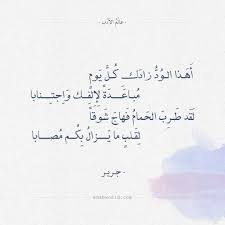 - عالم الأدب -
أَهَذا الوُدُّ زادَكِ كُلَّ يَومٍ
مُباعَدَةً لِإِلفِكِ وَاِجتِنابا
لَقَد طَرِبَ الحَمامُ فَهاجَ شَوقاً
لِقَلبٍ ما يَزالُ بِكُم مُصابا
- جرير -